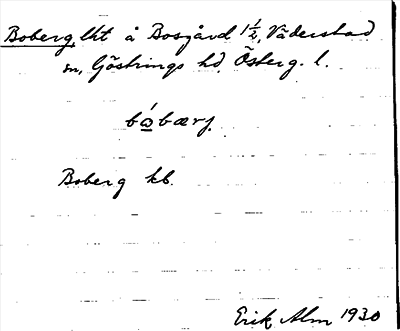 Boberg, lht å Bosgård 1½, Väderstad
sn, Göstrings hd, Österg. l.
bǻbærj.
Boberg kb.
Erik Alm 1930